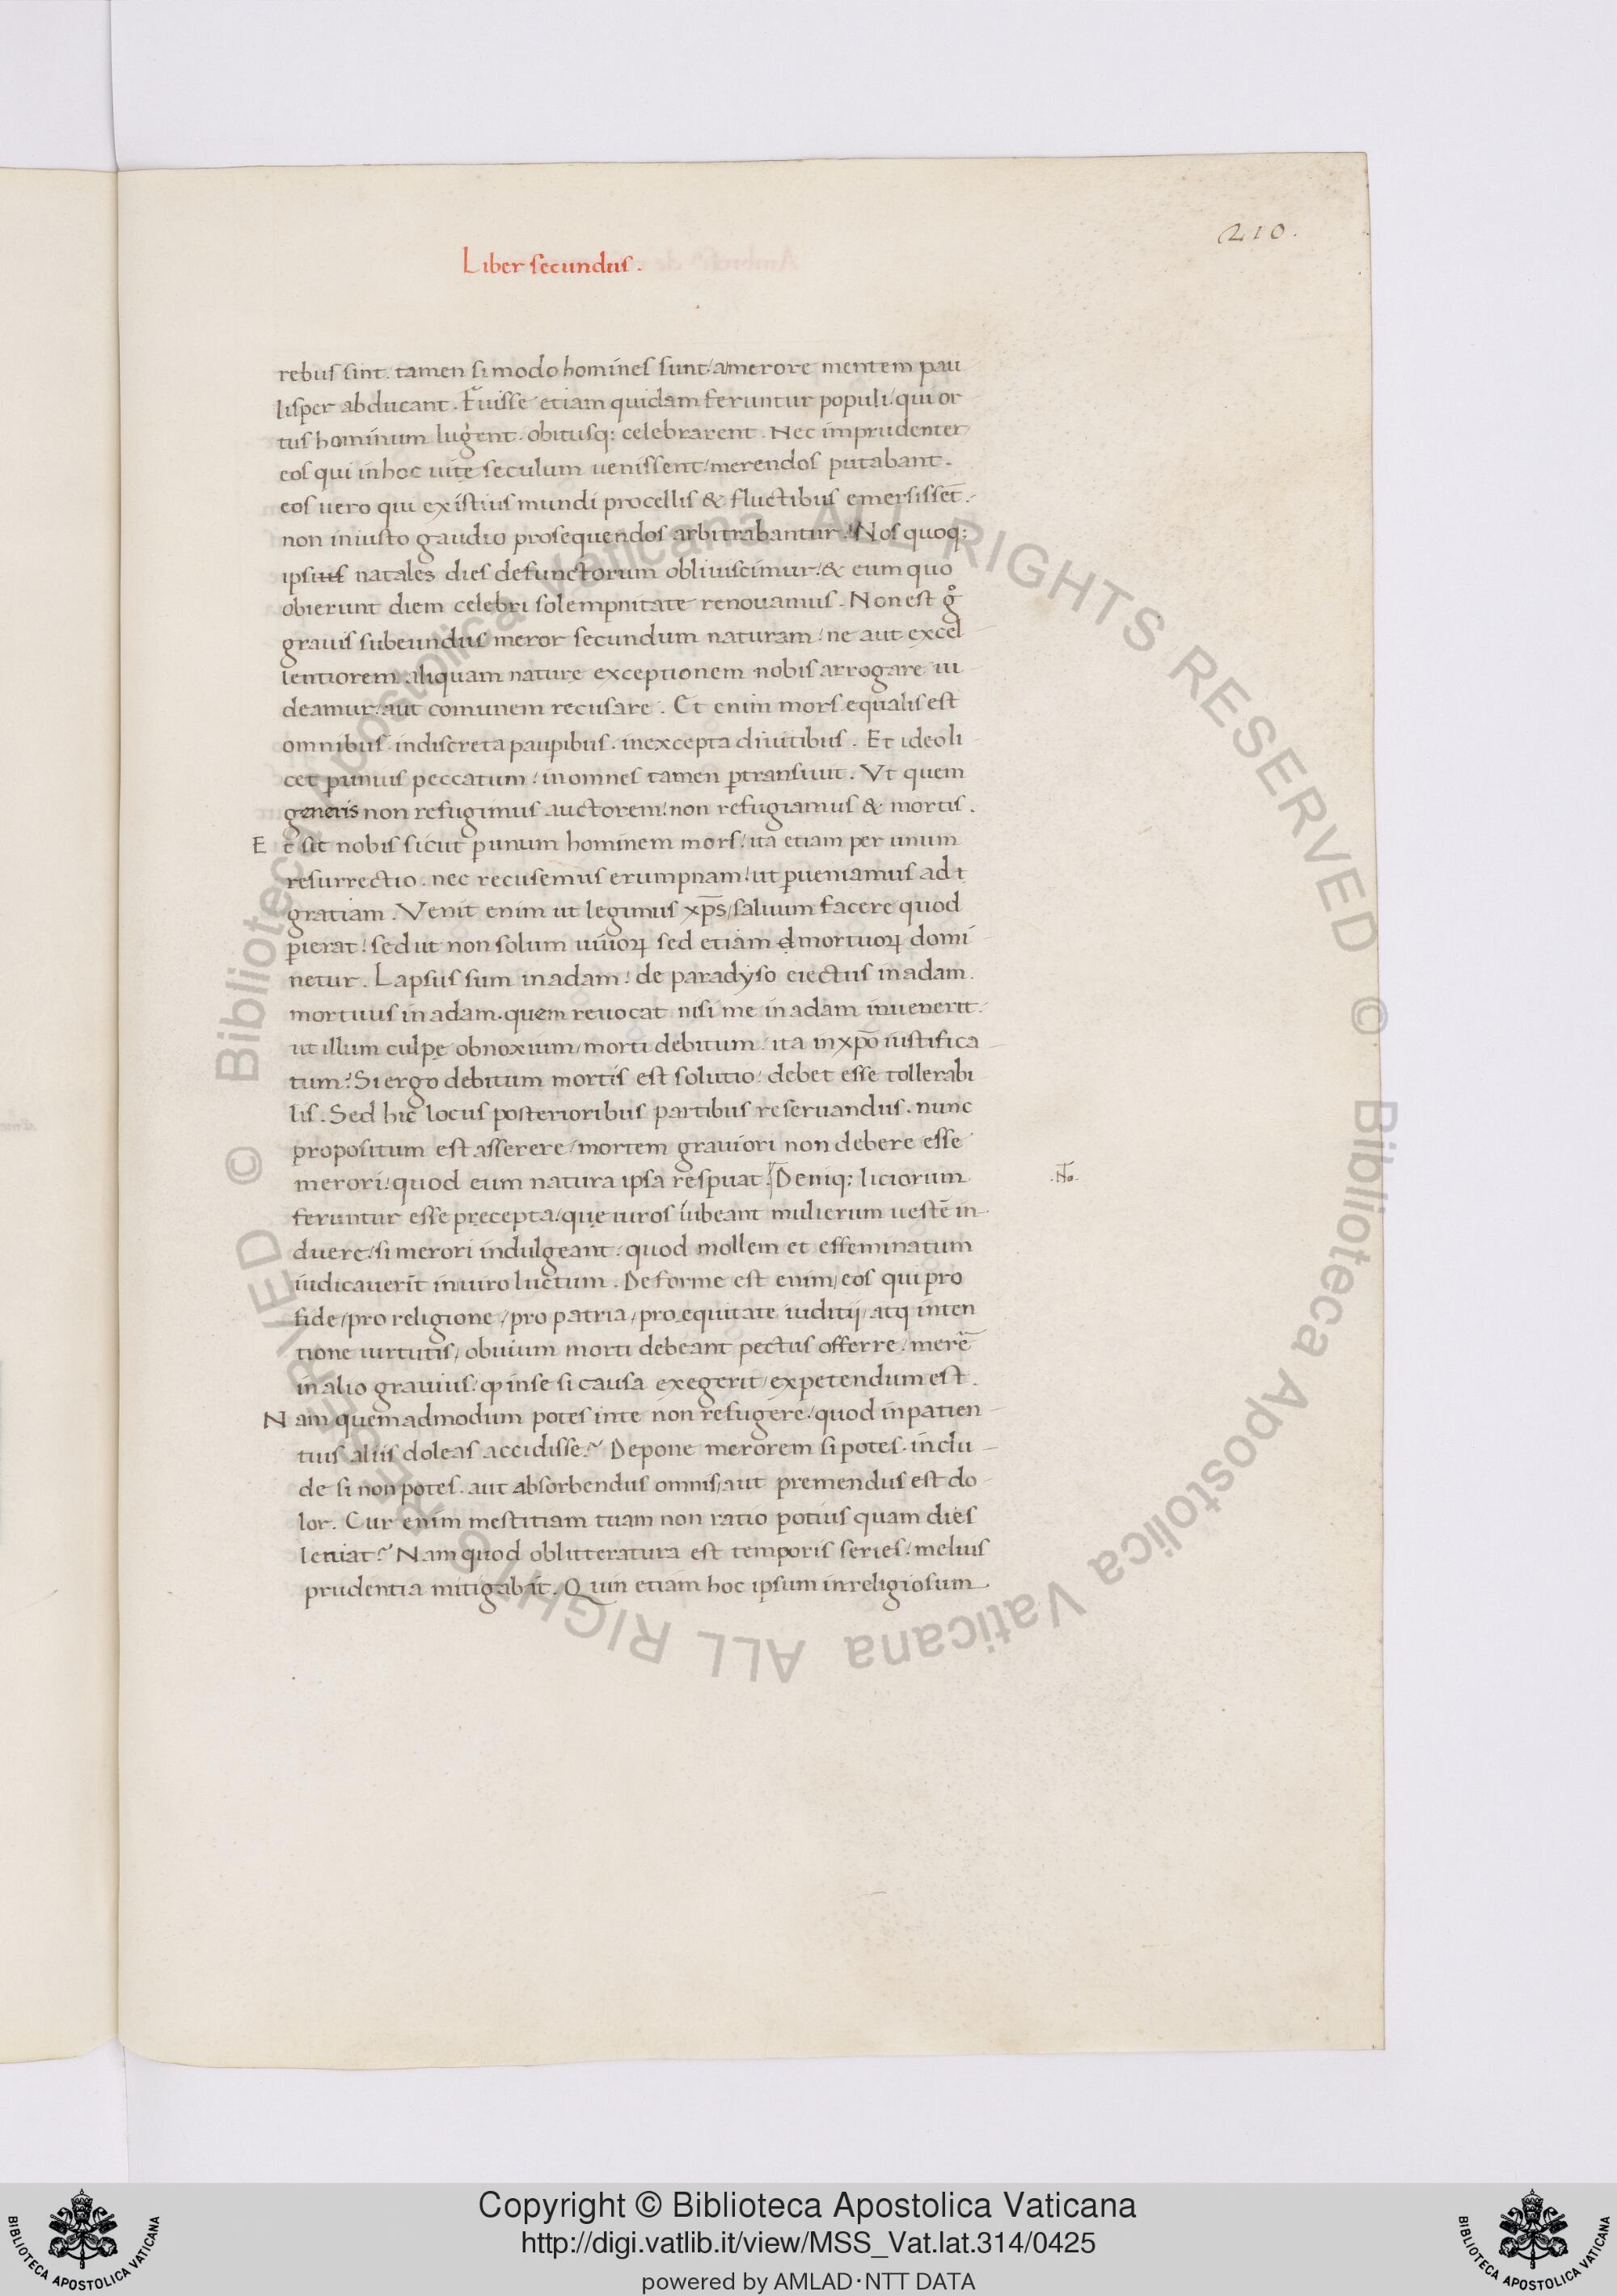 210.
Liber secundus.
rebus sint. tamen si modo homines sunt / a merore mentem pau
lisper abducant. Fuisse etiam quidam feruntur populi / qui or
tus hominum lugent. obitusq; celebrarent. Nec imprudenter
eos qui in hoc uitę seculum uenissent / merendos putabant.
eos uero qui ex istius mundi procellis & fluctibus emersissēt.
non iniusto gaudio prosequendos arbitrabantur. Nos quoq;
ipsius natales dies defunctorum obliuiscimur / & eum quo
obierunt diem celebri solempnitate renouamus. Non est gͦ
grauis subeundus meror secundum naturam / ne aut excel
lentiorem aliquam naturę exceptionem nobis arrogare ui
deamur / aut comunem recusare. Et enim mors equalis est
omnibus indiscreta paupibus. inexcepta diuitibus. Et ideo li
cet p unius peccatum / in omnes tamen ptransiuit. Vt quem
generis non refugimus auctorem / non refugiamus & mortis.
Et sit nobis sicut p unum hominem mors / ita etiam per unum
resurrectio. nec recusemus erumpnam / ut pueniamus ad
gratiam. Venit enim ut legimus xp̄s / saluum facere quod
pierat / sed ut non solum uiuoꝝ sed etiam & mortuoꝝ domi
netur. Lapsus sum in adam / de paradyso eiectus in adam.
mortuus in adam. quem reuocat nisi me in adam inuenerit.
ut illum culpę obnoxium / morti debitum. ita in xp̄o iustifica
tum? Si ergo debitum mortis est solutio / debet esse tollerabi
lis. Sed hic locus posterioribus partibus reseruandus. nunc
propositum est asserere / mortem grauiori non debere esse
merori / quod eum natura ipsa respuat. Deniq; liciorum
.No.
feruntur esse pręcepta / quę uiros iubeant mulierum uestē in
duere / si merori indulgeant. quod mollem et effeminatum
iudicauerīt in uiro luctum. Deforme est enim / eos qui pro
fide / pro religione / pro patria / pro equitate iuditij / atq inten
tione uirtutis / obuium morti debeant pectus offerre / merē
in alio grauius / ꝙ in se si causa exegerit / expetendum est.
Nam quemadmodum potes in te non refugere / quod inpatien
tius aliis doleas accidisse? Depone merorem si potes. inclu
de si non potes. aut absorbendus omnis / aut premendus est do
lor. Cur enim mestitiam tuam non ratio potius quam dies
leniat? Nam quod oblitteratura est temporis series / melius
prudentia mitigabit. Quin etiam hoc ipsum inreligiosum
© Biblioteca Apostolica Vaticana ALL RIGHTS RESERVED
© Biblioteca Apostolica Vaticana ALL RIGHTS RESERVED
Copyright © Biblioteca Apostolica Vaticana
http://digi.vatlib.it/view/MSS_Vat.lat.314/0425
powered by AMLAD·NTT DATA
BIBLIOTECA APOSTOLICA VATICANA
BIBLIOTECA APOSTOLICA VATICANA